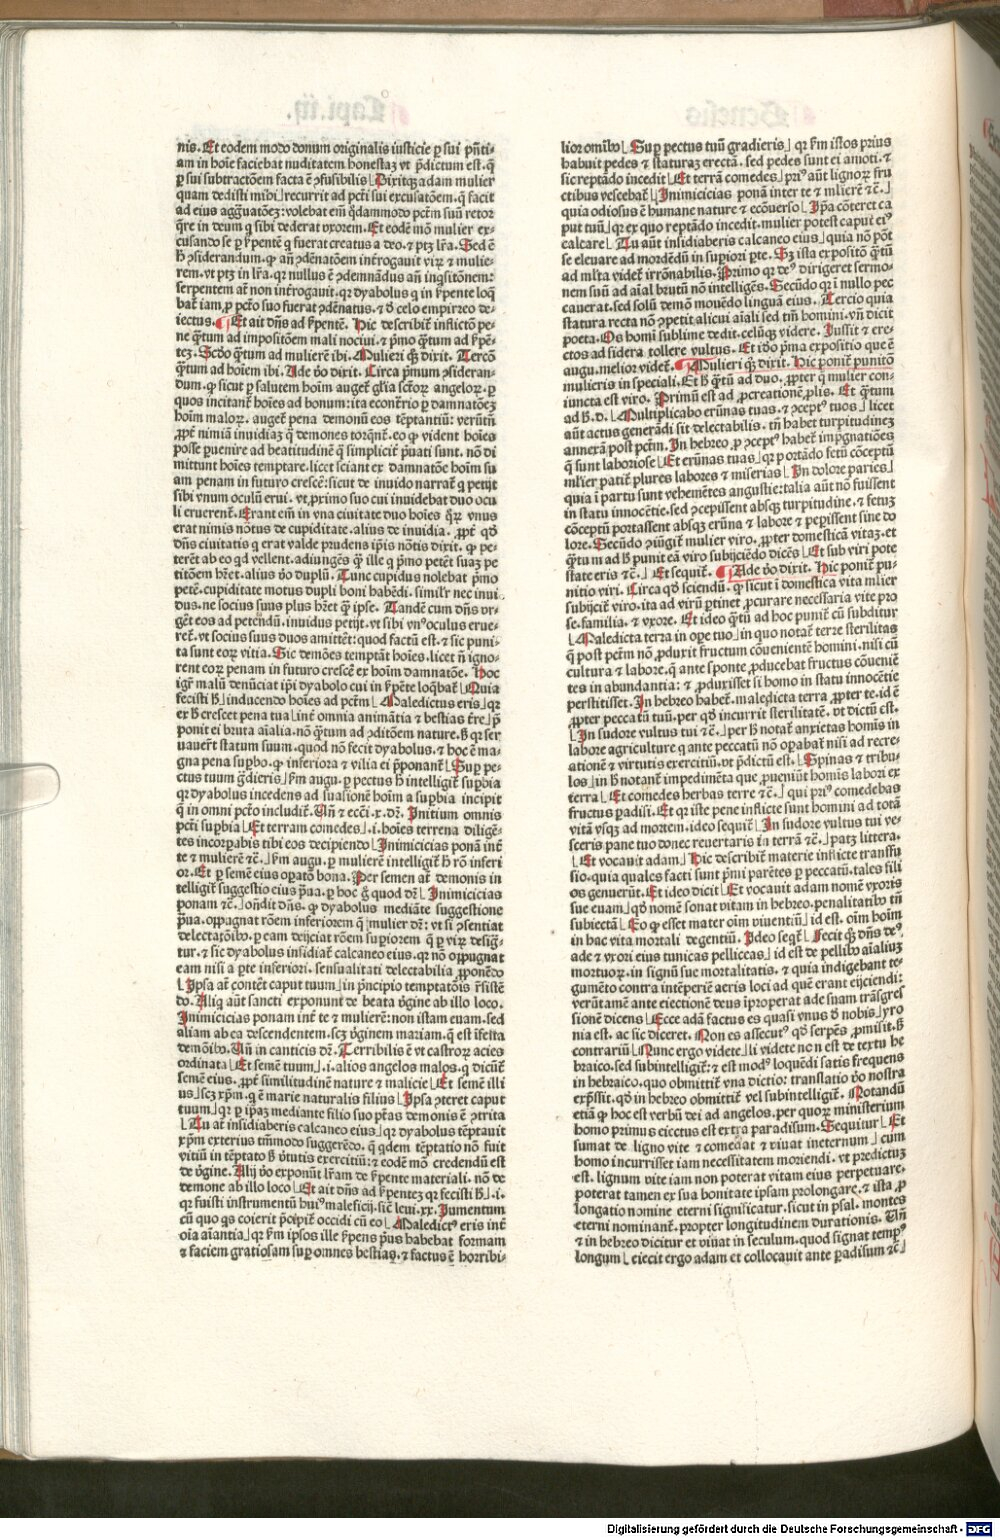 nis. Et eodem modo donum originalis iusticie ꝑ sui pn̄ti-
am in hoīe faciebat nuditatem honestaꝫ vt p̄dictum est. ꝙ
ꝑ sui subtractōem facta ē ꝯfusibilis Dixitqꝫ adam mulier
quam dedisti mihi recurrit ad pctī sui excusatōem. ꝙ facit
ad eius aggᷓuatōeꝫ: volebat em̄ qͣdammodo pctm̄ suū retor
qͣre in deum qui sibi dederat vxorem. Et eodē mō mulier ex-
cusando se ꝑ ẜpentē ꝙ fuerat creatus a deo. ⁊ ptꝫ lr̄a. Sed ē
ꜧ ꝯsiderandum. ꝙ an̄ ꝯdēnatōem int̄rogauit virꝫ ⁊ mulie-
rem. vt ptꝫ in lr̄a. qꝛ nullus ē ꝯdemnādus an̄ inqͥsitōnem:
serpentem at̄ non int̄rogauit. qꝛ dyabolus qͥ in ẜpente loqͣ
bat̄ iam ꝓ pctō suo fuerat ꝯdēnatus. ⁊ ꝺ celo empirreo de-
iectus. Et ait dn̄s ad ẜpentē. Hic describit̄ inflictō pe-
ne qͣntum ad impositōem mali nociui. ⁊ pͥmo qͣntum ad ẜpē-
teꝫ. Scꝺo qͣntum ad mulierē ibi. Mulieri qꝫ dixit. Tercō
qͣntum ad hoīem ibi. Ade vo dixit. Circa pͥmum ꝯsideran-
dum. ꝙ sicut ꝑ salutem hoīm auget̄ gl̄ia sctōꝝ angeloꝝ. ꝑ
quos incitant̄ hoīes ad bonum: ita econtrͥo ꝑ damnatōeꝫ
hoīm maloꝝ. auget̄ pena demonū eos tēptantiū: verūtn̄
ꝓpt̄ nimiā inuidiaꝫ qua demones torqn̄t̄. eo ꝙ vident hoīes
posse ꝑuenire ad beatitudinē qua simplicit̄ pͥuati sunt. nō di
mittunt hoīes temptare. licet sciant ex damnatōe hoīm su
am penam in futuro crescē: sicut de inuido narrat̄ qui petijt
sibi vnum oculū erui. vt proximo suo cui inuidebat duo ocu
li eruerent̄. Erant em̄ in vna ciuitate duo hoīes qͦꝝ vnus
erat nimis nōtus de cupiditate. alius de inuidia. ꝓpt̄ qꝺ
dn̄s ciuitatis qui erat valde prudens ip̄is nōtis dixit. ꝙ pe-
terēt ab eo qꝺ vellent. adiungēs ꝙ ille qui pͥmo petēt suaꝫ pe
titōem hēt. alius vo duplū. Tunc cupidus nolebat pͥmo
petē. cupiditate motus dupli boni habēdi. simil̄r nec inui-
dus. ne socius suus plus hēt qͣm ipse. Tandē cum dn̄s vr-
gēt eos ad petendū. inuidus petijt. vt sibi vnus oculus erue-
ret̄. vt socius suus duos amittēt: quod factū est. ⁊ sic puni-
ta sunt eoꝝ vitia. Sic demōes temptāt hoīes. licet nō igno-
rent eoꝝ penam in futuro crescē ex hoīm damnatōe. Hoc
igit̄ malū denūciat ip̄i dyabolo cui in ẜpēte loqͣbat̄ Quia
fecisti ꜧ inducendo hoīes ad pctm̄ Maledictus eris qꝛ
ex ꜧ crescet pena tua int̄ omnia animātia ⁊ bestias tr̄e pͥ
ponit ei bruta aīalia. nō qͣntum ad ꝯditōem nature. sꝫ qꝛ ser
uauert̄ statum suum. quod nō fecit dyabolus. ⁊ hoc ē ma-
gna pena suꝑbo. ꝙ inferiora ⁊ vilia ei p̄ponant̄ Suꝑ pe-
ctus tuum gͣdieris ẜm augu. ꝑ pectus ꜧ intelligit̄ suꝑbia
qꝛ dyabolus incedens ad suasionē hoīm a suꝑbia incipit
que in omni pctō includit̄. Vn̄ ⁊ ecci. x. dꝛ. Initium omnis
pctī suꝑbia Et terram comedes .i. hoīes terrena diligē-
tes incorꝑabis tibi eos decipiendo Inimicicias ponā int̄
te ⁊ mulierē ⁊c̄. ẜm augu. ꝑ mulierē intelligit̄ ꜧ rō inferi
or. Et ꝑ semē eius oꝑatō bona. Per semen at̄ demonis in
telligit̄ suggestio eius pͣua. ꝑ hoc gͦ quod dꝛ Inimicicias
ponam ⁊c̄. on̄dit dn̄s. ꝙ dyabolus mediāte suggestione
pͣua. oppugnat rōem inferiorem que mulier dꝛ: vt si ꝯsentiat
delectatōibꝰ. ꝑ eam deijciat rōem suꝑiorem que ꝑ virꝫ desigͣ-
tur. ⁊ sic dyabolus insidiat̄ calcaneo eius. qꝛ nō oppugnat
eam nisi a ꝑte inferiori. sensualitati delectabilia ꝓponēdo
Ipsa at̄ contēt caput tuum in pͥncipio temptatōis resistē
do. Aliqui aūt sancti exponunt de beata vͥgine ab illo loco.
Inimicicias ponam int̄ te ⁊ mulierē: non istam euam. sed
aliam ab ea descendentem. scꝫ vͥginem mariam. que est ifesta
demōibꝰ. Vn̄ in canticis dꝛ. Terribilis ē vt castroꝝ acies
ordinata Et semē tuum .i. alios angelos malos. qui dicūt̄
semē eius. ꝓpt̄ similitudinē nature ⁊ malicie Et semē illi
us scꝫ xp̄m. qui ē marie naturalis filius Ipsa ꝯteret caput
tuum qꝛ ꝑ ip̄aꝫ mediante filio suo ptās demonis ē ꝯtrita
Tu at̄ insidiaberis calcaneo eius qꝛ dyabolus tēptauit
xp̄m exterius tm̄modo suggerēdo. que qͥdem tēptatio nō fuit
vitiū in tēptato sꝫ vͥtutis exercitiū: ⁊ eodē mō credendū est
de vͥgine. Alij vo exponūt lr̄am de ẜpente materiali. nō de
demone ab illo loco Et ait dn̄s ad ẜpenteꝫ qꝛ fecisti ꜧ .i.
qꝛ fuisti instrumentū huiꝰ maleficij. sic leui. xx. Jumentum
cū quo qͥs coierit pͥcipit̄ occidi cū eo Maledictꝰ eris int̄
oīa aīantia qꝛ ẜm ipsos ille ẜpens pͥus habebat formam
⁊ faciem gratiosam suꝑ omnes bestias. ⁊ factus ē horribi-
lior omibꝰ Suꝑ pectus tuū gradieris qꝛ ẜm istos prius
habuit pedes ⁊ staturaꝫ erectā. sed pedes sunt ei amoti. ⁊
sic reptādo incedit Et terrā comedes priꝰ aūt lignoꝝ fru
ctibus vescebat̄ Inimicicias ponā inter te ⁊ mlierē ⁊c̄.
quia odiosus ē humane nature ⁊ ecōuerso Ip̄a cōteret ca
put tuū qꝛ ex quo reptādo incedit. mulier potest caput eiꝰ
calcare Tu aūt insidiaberis calcaneo eius quia nō pōt
se eleuare ad mordēdū in suꝑiori ꝑte. Sꝫ ista expositō qͣntū
ad ml̄ta videt̄ irrōnabilis. Primo qꝛ deꝰ dirigeret sermo-
nem suū ad aīal brutū nō intelligēs. Secūdo qꝛ ī nullo pec
cauerat. sed solū demō mouēdo linguā eius. Tercio quia
statura recta nō ꝯpetit alicui aīali sed tm̄ homini. vn̄ dicit
poeta. Os homī sublime dedit. celūqꝫ videre. Iussit ⁊ ere-
ctos ad sidera tollere vultus. Et idō pͥma expositio que ē
augu. melior videt̄. Mulieri qꝫ dixit. Hic ponit̄ punitō
mulieris in speciali. Et ꜧ qͣntū ad duo. ꝓpter que mulier con-
iuncta est viro. Primū est ad ꝓcreationē ꝓlis. Et qͣntum
ad ꜧ. d. Multiplicabo erūnas tuas. ⁊ ꝯceptꝰ tuos licet
aūt actus generādi sit delectabilis. tn̄ habet turpitudineꝫ
annexā post pctm̄. In hebreo ꝓ ꝯceptꝰ habet̄ imp̄gnatiōes
que sunt laboriose Et erūnas tuas qꝛ portādo fetū cōceptū
ml̄ier patit̄ plures labores ⁊ miserias In dolore paries
quia ī partu sunt vehemētes angustie: talia aūt nō fuissent
in statu innocētie. sed ꝯcepissent absqꝫ turpitudine. ⁊ fetuꝫ
cōceptū portassent absqꝫ erūna ⁊ labore ⁊ peꝑissent sine do
lore. Secūdo ꝯiūgit̄ mulier viro. ꝓpter domesticā vitaꝫ. et
qͣntum ad ꜧ punit eā viro subijciēdo dicēs Et sub viri pote
state eris ⁊c̄. Et sequit̄. Ade vo dixit. Hic ponit̄ pu-
nitio viri. Circa qꝺ sciendū. ꝙ sicut ī domestica vita mlier
subijcit̄ viro. ita ad virū ꝑtinet ꝓcurare necessaria vite pro
se. familia. ⁊ vxore. Et ideo qͣntū ad hoc punit̄ cū subditur
Maledicta terra in oꝑe tuo in quo notat̄ terre sterilitas
que post pctm̄ nō ꝓduxit fructum cōuenientē homini. nisi cū
cultura ⁊ labore. que ante sponte ꝓducebat fructus cōueniē
tes in abundantia: ⁊ ꝓduxisset si homo in statu innocētie
perstitisset. In hebreo habet̄. maledicta terra ꝓpter te. id ē
ꝓpter peccatū tuū. per qꝺ incurrit sterilitatē. vt dictū est.
In sudore vultus tui ⁊c̄. per ꜧ notat̄ anxietas homīs in
labore agriculture que ante peccatū nō oꝑabat̄ nisi ad recre-
ationē ⁊ virtutis exercitiū. vt p̄dictū est. Spinas ⁊ tribu-
los in ꜧ notant̄ impedimēta que ꝓueniūt homīs labori ex
terra Et comedes herbas terre ⁊c̄. qui priꝰ comedebas
fructus padisi. Et qꝛ iste pene inflicte sunt homini ad totā
vitā vsqꝫ ad mortem. ideo sequit̄ In sudore vultus tui ve-
sceris pane tuo donec reuertaris in terrā ⁊c̄. patꝫ littera.
Et vocauit adam Hic describit̄ materie inflicte transfu
sio. quia quales facti sunt pͥmi parētes ꝑ peccatū. tales fili
os genuerūt. Et ideo dicit Et vocauit adam nomē vxoris
sue euam qꝺ nomē sonat vitam in hebreo. penalitatibꝰ tn̄
subiectā Eo ꝙ esset mater oīm viuentiū id est. oīm hoīm
in hac vita mortali degentiū. Ideo seqt̄ Fecit qꝫ dn̄s deꝰ
ade ⁊ vxori eius tunicas pelliceas id est de pellibꝰ aīaliuꝫ
mortuoꝝ. in signū sue mortalitatis. ⁊ quia indigebant te-
gumēto contra intēperiē aeris loci ad quē erant eijciendi:
verūtamē ante eiectionē deus īproperat ade suam trāsgres
sionē dicens Ecce adā factus es quasi vnus ꝺ nobis yro
nia est. ac sic diceret. Non es assecutꝰ qꝺ serpēs ꝓmisit. sꝫ
contrariū Nunc ergo videte li videte non est de textu he
braico. sed subintelligit̄: ⁊ est modꝰ loquēdi satis frequens
in hebraico. quo obmittit̄ vna dictio: translatio vo nostra
exp̄ssit. qꝺ in hebreo obmittit̄ vel subintelligit̄. Notandū
etiā ꝙ hoc est verbū dei ad angelos. per quoꝝ ministerium
homo primus eiectus est extra paradisum. Sequitur Et
sumat de ligno vite ⁊ comedat ⁊ viuat ineternum cum
homo incurrisset iam necessitatem moriendi. vt predictuꝫ
est. lignum vite iam non poterat vitam eius perpetuare.
poterat tamen ex sua bonitate ipsam prolongare. ⁊ ista ꝓ
longatio nomine eterni significatur. sicut in psal. montes
eterni nominant̄. propter longitudinem durationis. Vn̄
⁊ in hebreo dicitur et viuat in seculum. quod signat tempꝰ
longum eiecit ergo adam et collocauit ante ꝑadisum ⁊c̄
Digitalisierung gefördert durch die Deutsche Forschungsgemeinschaft - DFG